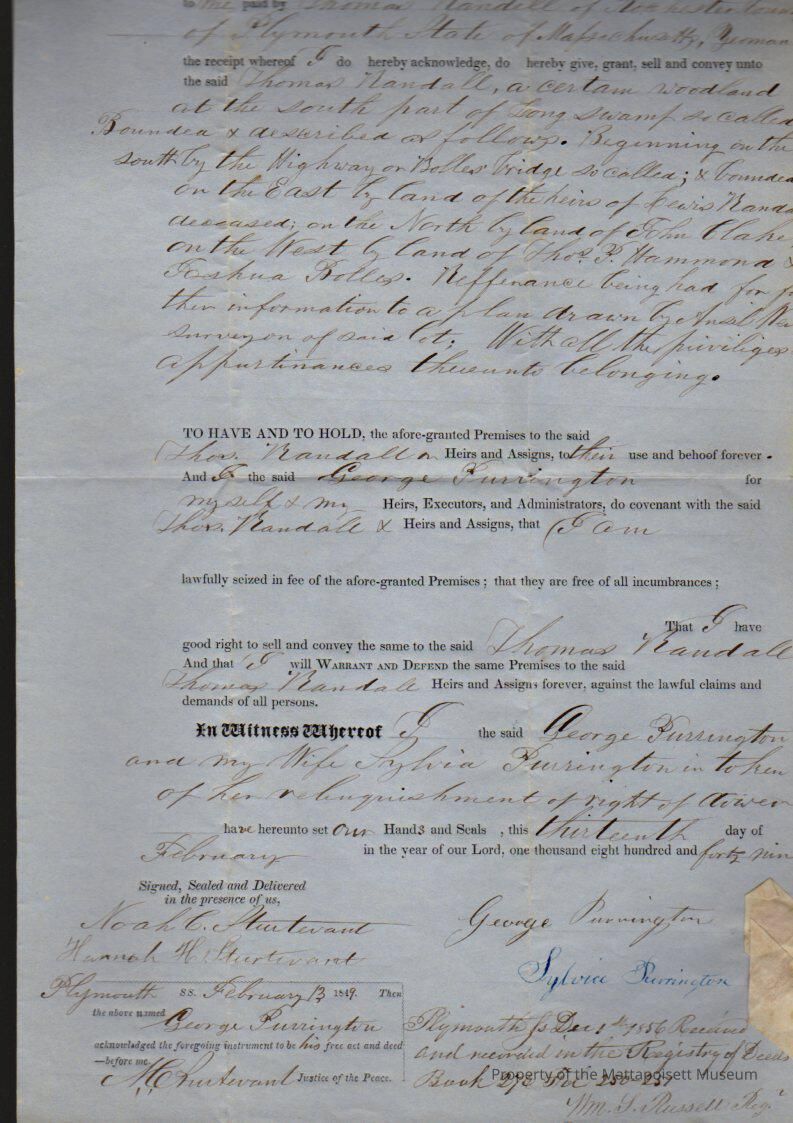 to me paid by Thomas Randell of Rochester
of Plymouth State of Massachusetts, Yeoman
the receipt whereof I do hereby acknowledge, do hereby give, grant, sell and convey unto
the said Thomas Randall, a certain woodland
at the south part of Long swamp so called
Bounded & described as follows. Beginning on the
south by the Highway or Bolles bridge so called; & bounded
on the East by land of the heirs of Lewis
deceased; on the North by land of John Clake
on the West by land of Thos. P. Hammond &
Joshua Bolles. Refferance being had for
ther information to a plan drawn by
surveyor of said lot; With all the priviliges
appurtinances thereunto belonging.
TO HAVE AND TO HOLD, the afore-granted Premises to the said
Thos. Randall or Heirs and Assigns, to their use and behoof forever.
And I the said George Purrington for
myself & my Heirs, Executors, and Administrators, do covenant with the said
Thos. Randall & Heirs and Assigns, that I am
lawfully seized in fee of the afore-granted Premises; that they are free of all incumbrances;
That I have
good right to sell and convey the same to the said Thomas Randall
And that I will WARRANT AND DEFEND the same Premises to the said
Thomas Randall Heirs and Assigns forever, against the lawful claims and
demands of all persons.
In Witness Whereof I the said George Purrington
and my Wife Sylvia Purrington in token
of her relinquishment of right of dower
have hereunto set our Hands and Seals, this thirteenth day of
February in the year of our Lord, one thousand eight hundred and forty nin
Signed, Sealed and Delivered
in the presence of us,
Noah C. Sturtevant George Purrington
Hannah H. Sturtevant
Sylvia Purrington
Plymouth SS. February 13 1849. Then
the above named
George Purrington
acknowledged the foregoing instrument to be his free act and deed
—before me.
Sturtevant Justice of the Peace.
Plymouth ss Dec 1st 1856 Received
and recorded in the Registry of Deeds
Book
Property of the Mattapoisett Museum
Wm. S. Russell Regr